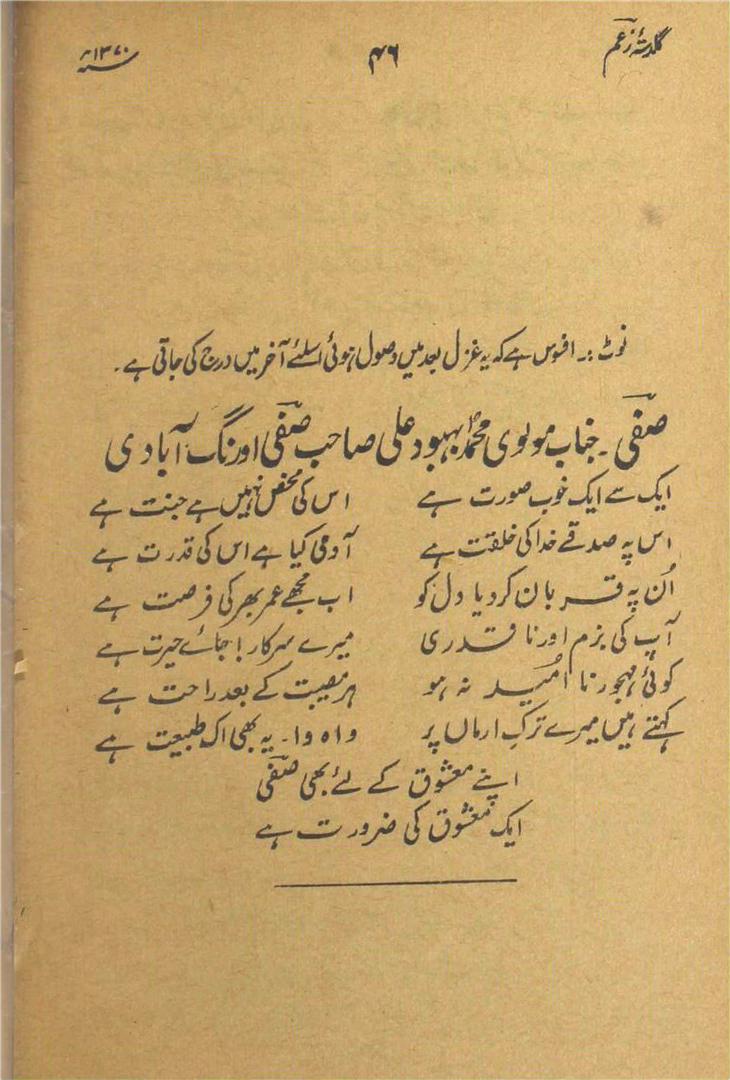 گلدستۂ زعم ۴۶ سنہ ۱۳۷۰
نوٹ :۔ افسوس ہے کہ یہ غزل بعد میں وصول ہوئی اسلئے آخر میں درج کی جاتی ہے۔
صفی۔ جناب مولوی محمد بہبود علی صاحب صفی اورنگ آبادی
ایک سے ایک خوب صورت ہے اس کی محفل نہیں ہے جنت ہے
اس پہ صدقے خدا کی خلقت ہے آدمی کیا ہے اس کی قدرت ہے
اُن پہ قربان کردیا دل کو اب مجھے عمر بھر کی فرصت ہے
آپ کی بزم اور ناقدری میرے سرکار! جائے حیرت ہے
کوئی مہجور نا اُمید نہ ہو ہر مصیبت کے بعد راحت ہے
کہتے ہیں میرے ترکِ ارماں پر واہ وا۔ یہ بھی اک طبیعت ہے
اپنے معشوق کے لئے بھی صفی
ایک معشوق کی ضرورت ہے